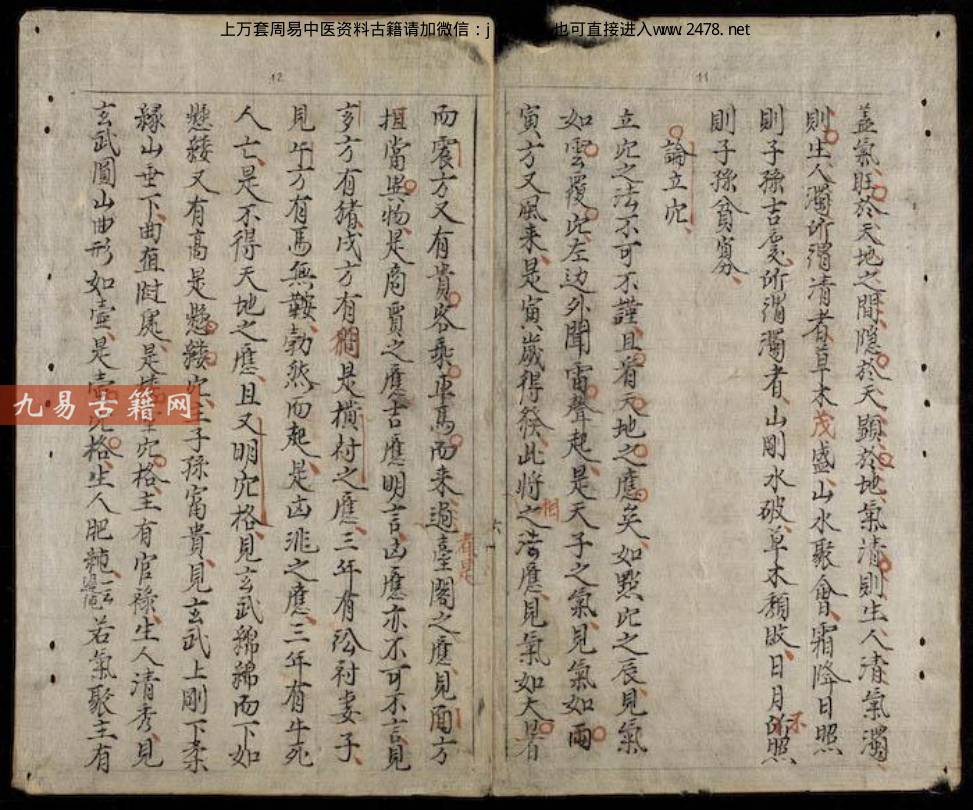 上万套周易中医资料古籍请加微信：j 也可直接进入www.2478.net
11
蓋氣旺於天地之間隱於天顯於地氣清則生人清氣濁
則生人濁所謂清者草木茂盛山水聚會霜降日照
則子孫吉慶所謂濁者山剛水破草木頹敗日月不照
則子孫貧寡
論立穴
立穴之法不可不謹且看天地之應矣如點穴之辰見氣
如雲覆穴左边外聞雷聲起是天子之氣見氣如雨
寅方又風來是寅歲得發此將相之法應見氣如犬者
六
12
而震方又有貴客乘車馬而來過臺閣之應見酉方
看是
担當異物是商賈之應吉應明言凶應亦不可不言見
亥方有猪戌方有狗是横村之應三年有訟討妻子
見午方有馬無鞍勃然而起是凶兆之應三年有牛死
人亡是不得天地之應且又明穴格見玄武綿綿而下如
懸縷又有高是懸縷穴主子孫富貴見玄武上剛下柔
緣山垂下曲直 是 穴格主有官祿生人清秀見
玄武圓山曲形如壺是壺穴格生人肥 若氣聚主有
九易古籍网